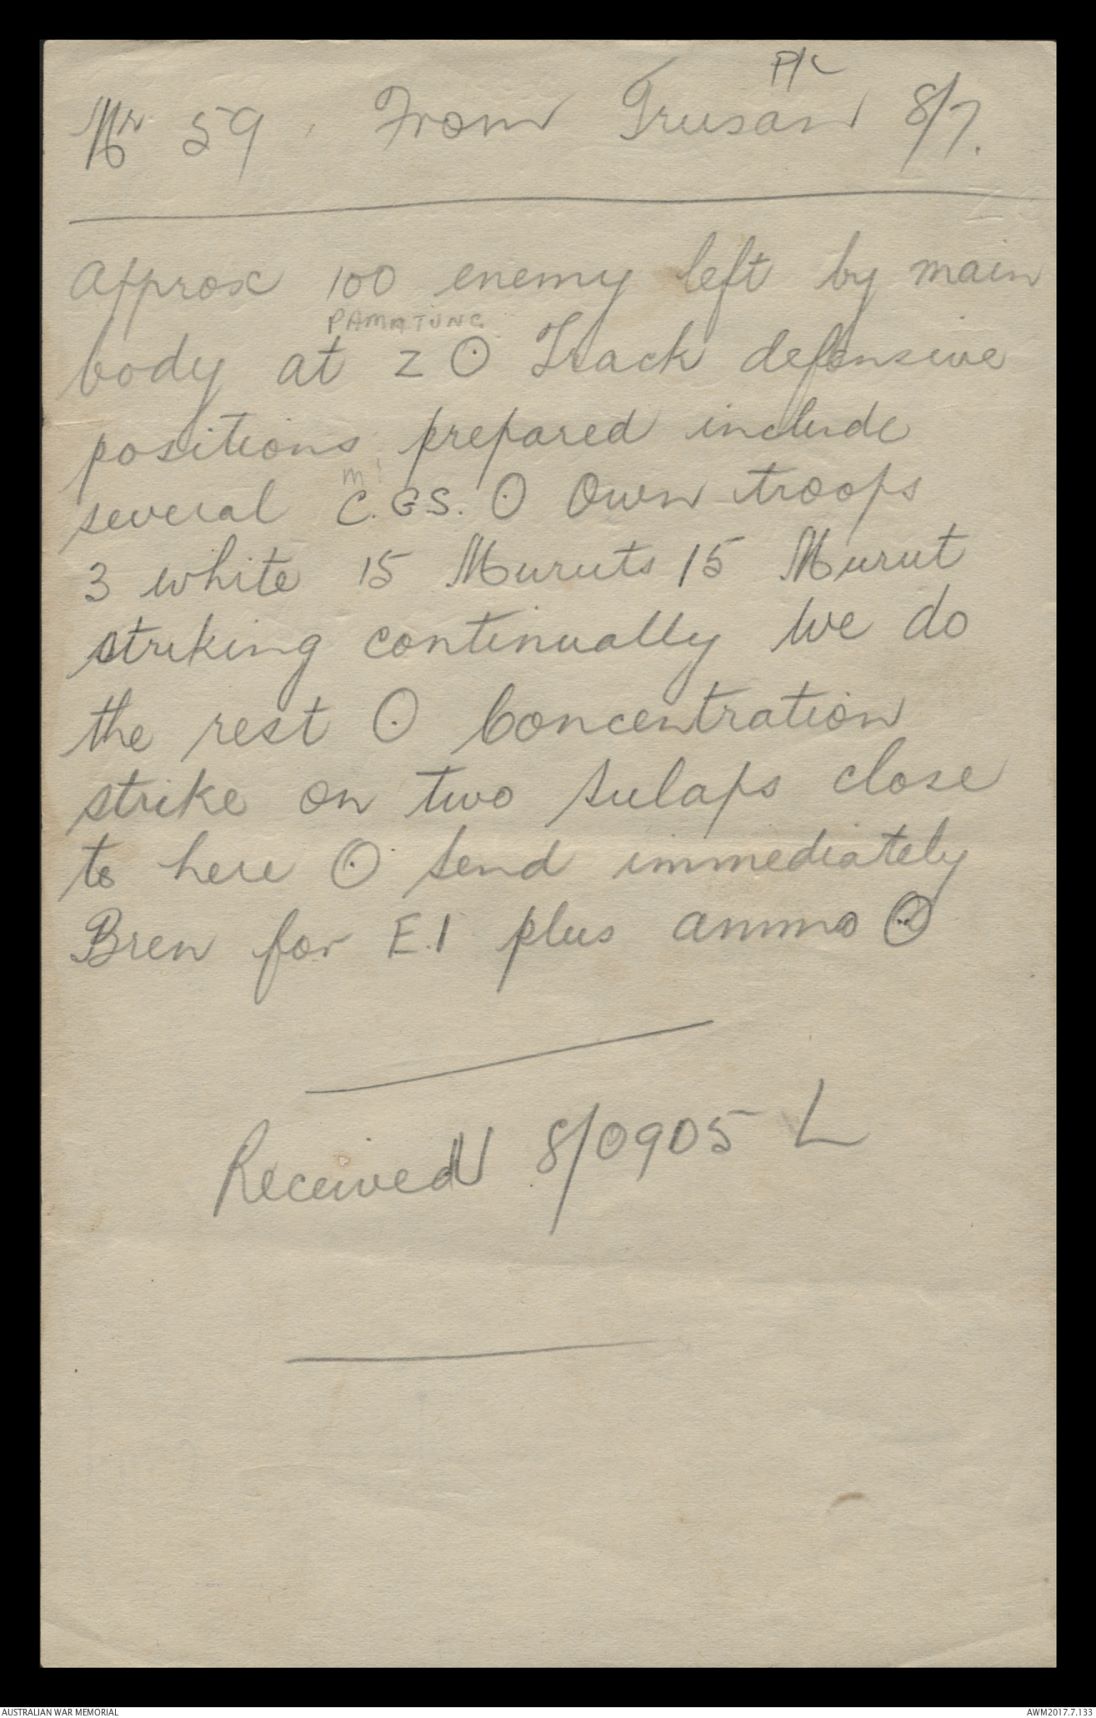 P/C
Nr 59. From Trusan 8/7.
Approx 100 enemy left by main
PAMATUNG
body at Z ⊙ Track defensive
positions prepared include
m!
several C.GS. ⊙ Own troops
3 white 15 Muruts 15 Murut
striking continually we do
the rest ⊙ Concentration
strike on two sulaps close
to here ⊙ Send immediately
Bren for E.1 plus ammo ⊙
Received 8/0905 L
AUSTRALIAN WAR MEMORIAL
AWM2017.7.133